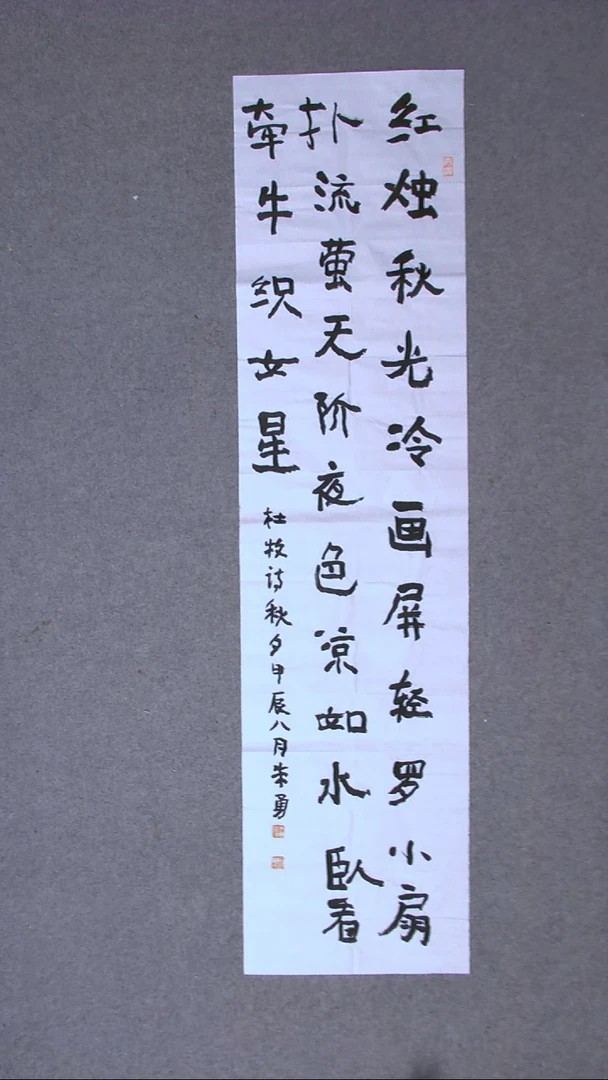 红烛秋光冷画屏轻罗小扇
扑流萤天阶夜色凉如水卧看
牵牛织女星
杜牧诗秋夕甲辰八月朱勇